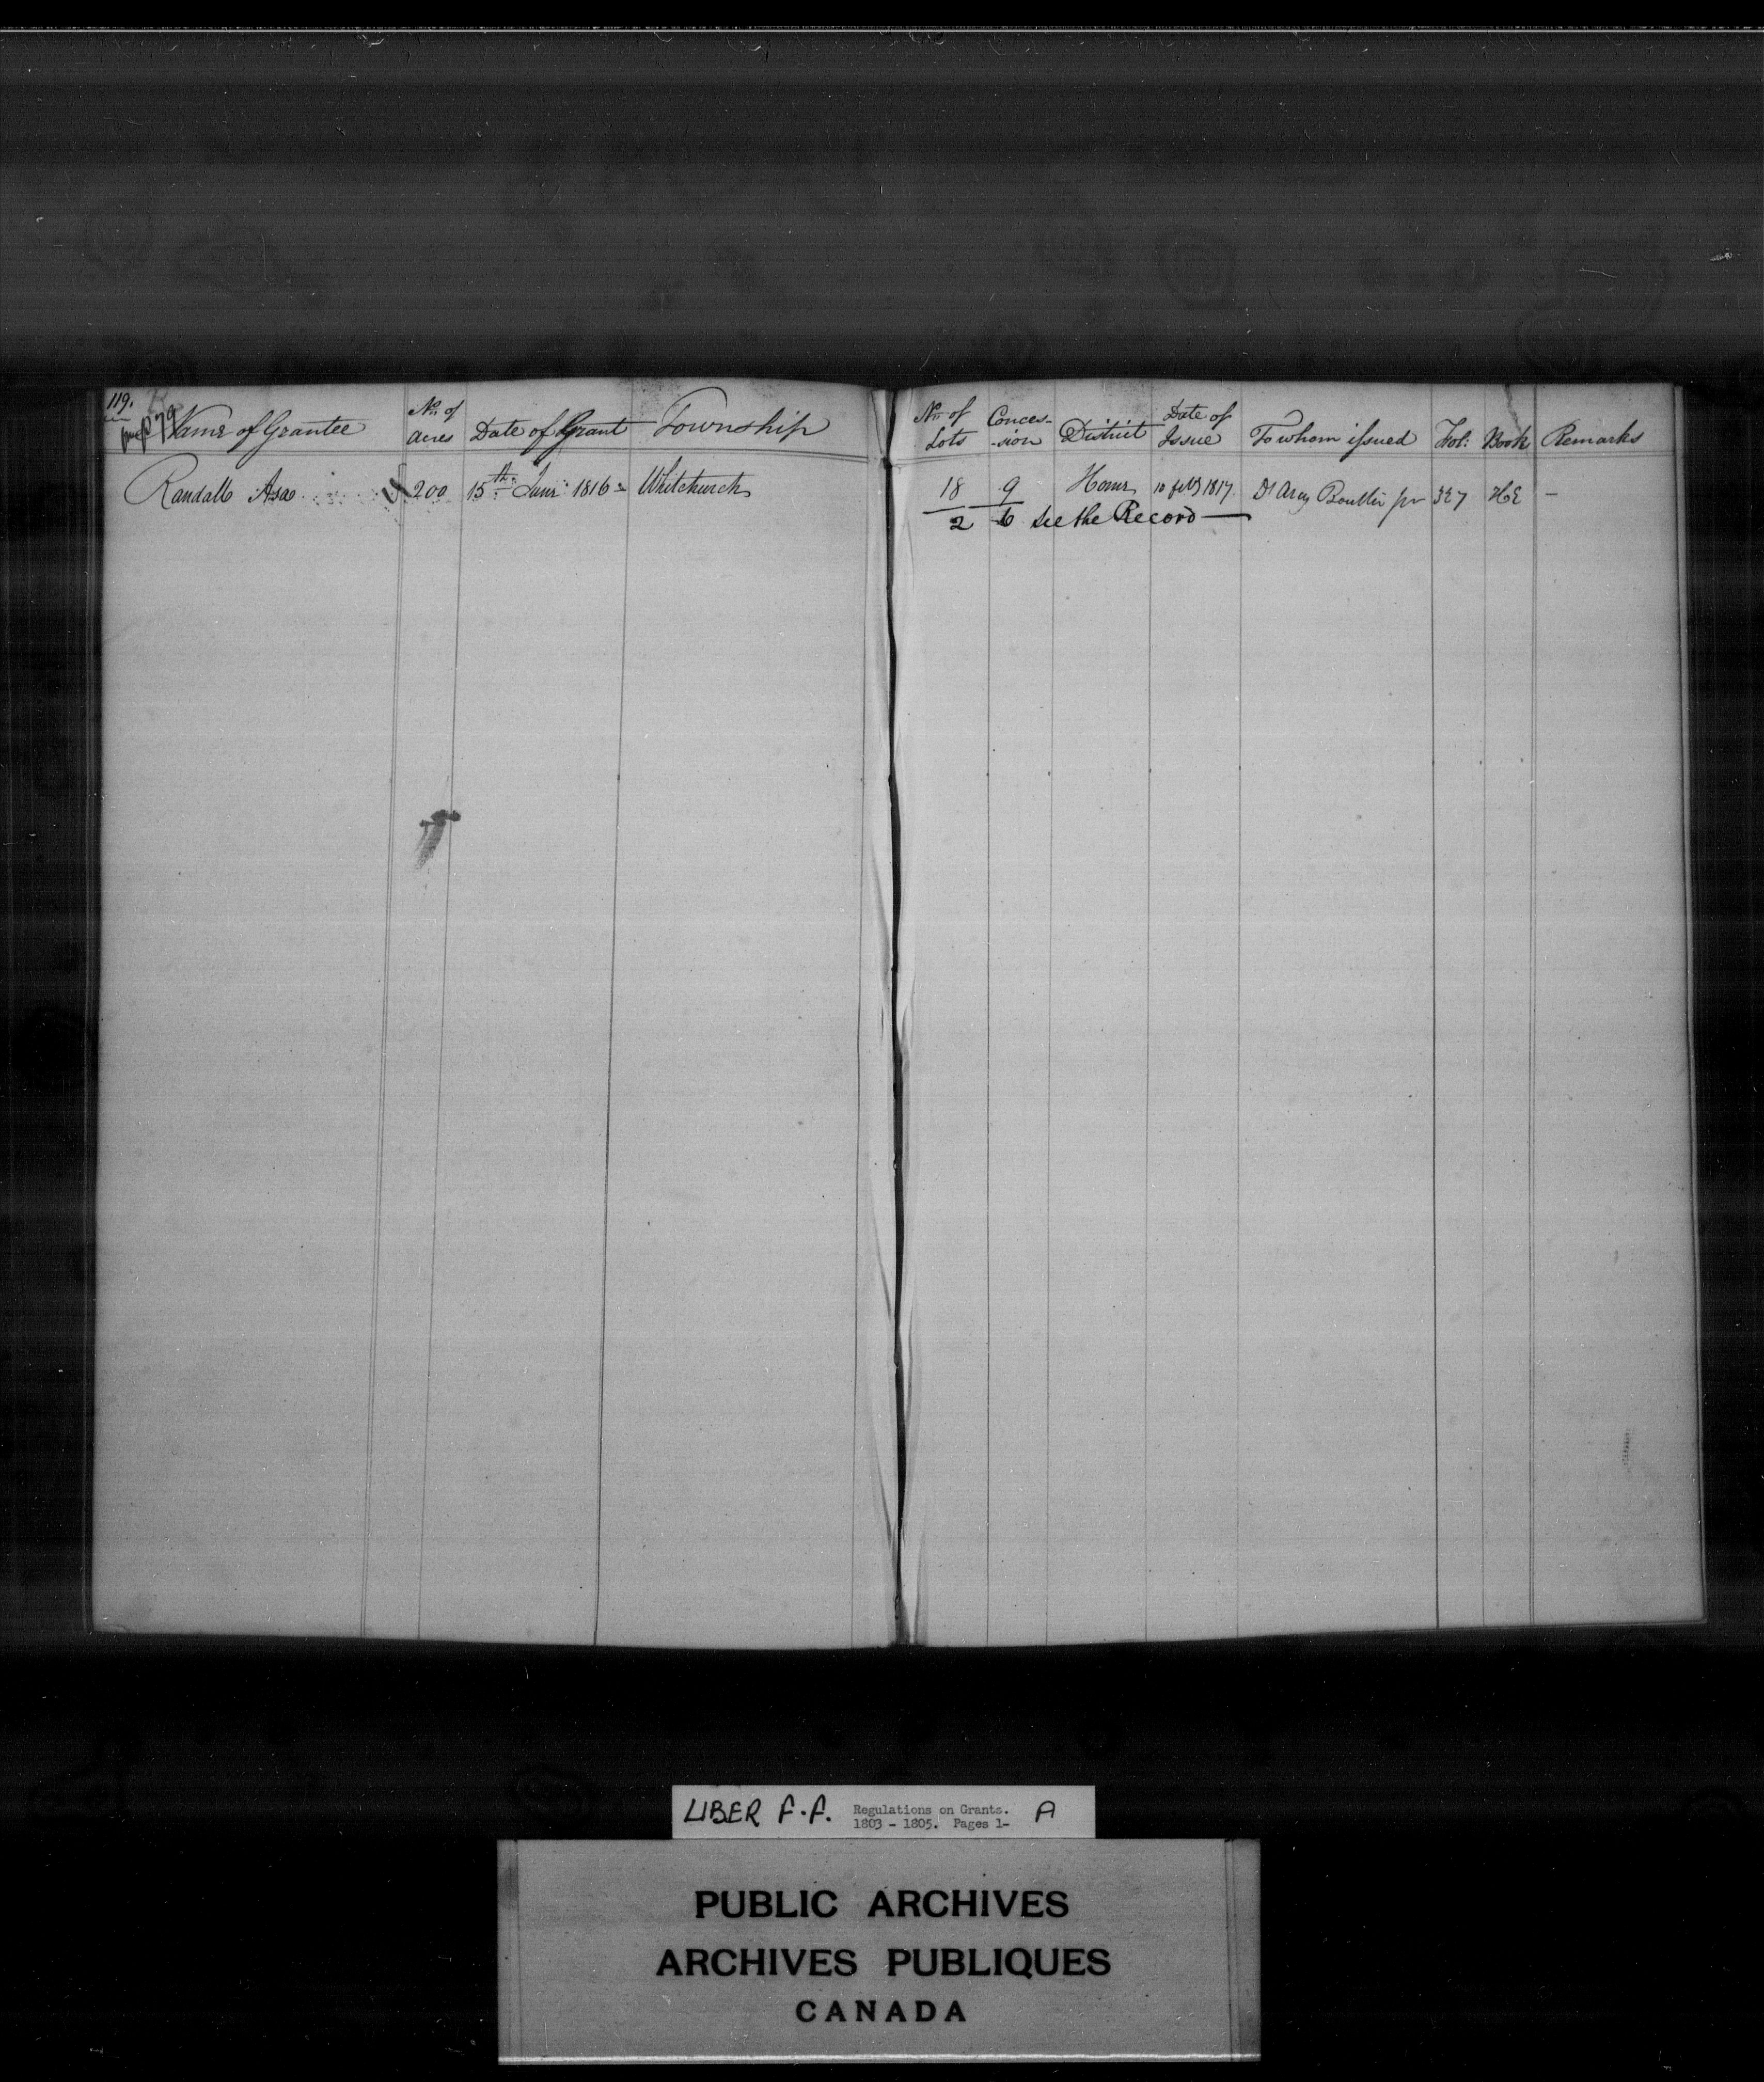 119.
Name of Grantee Nos. of acres Date of Grant Township Nos. of Lots Conces- -sion District Date of Issue To whom issued Fol: Book Remarks
Randall Asa 200 15th Jany 1816 Whitchurch 18 9 Home 10 feby 1817 D'Arcy Boulton jnr 327 HE –
2 6 see the Record —
LIBER F.F. Regulations on Grants. A
1803 - 1805. Pages 1-
PUBLIC ARCHIVES
ARCHIVES PUBLIQUES
CANADA